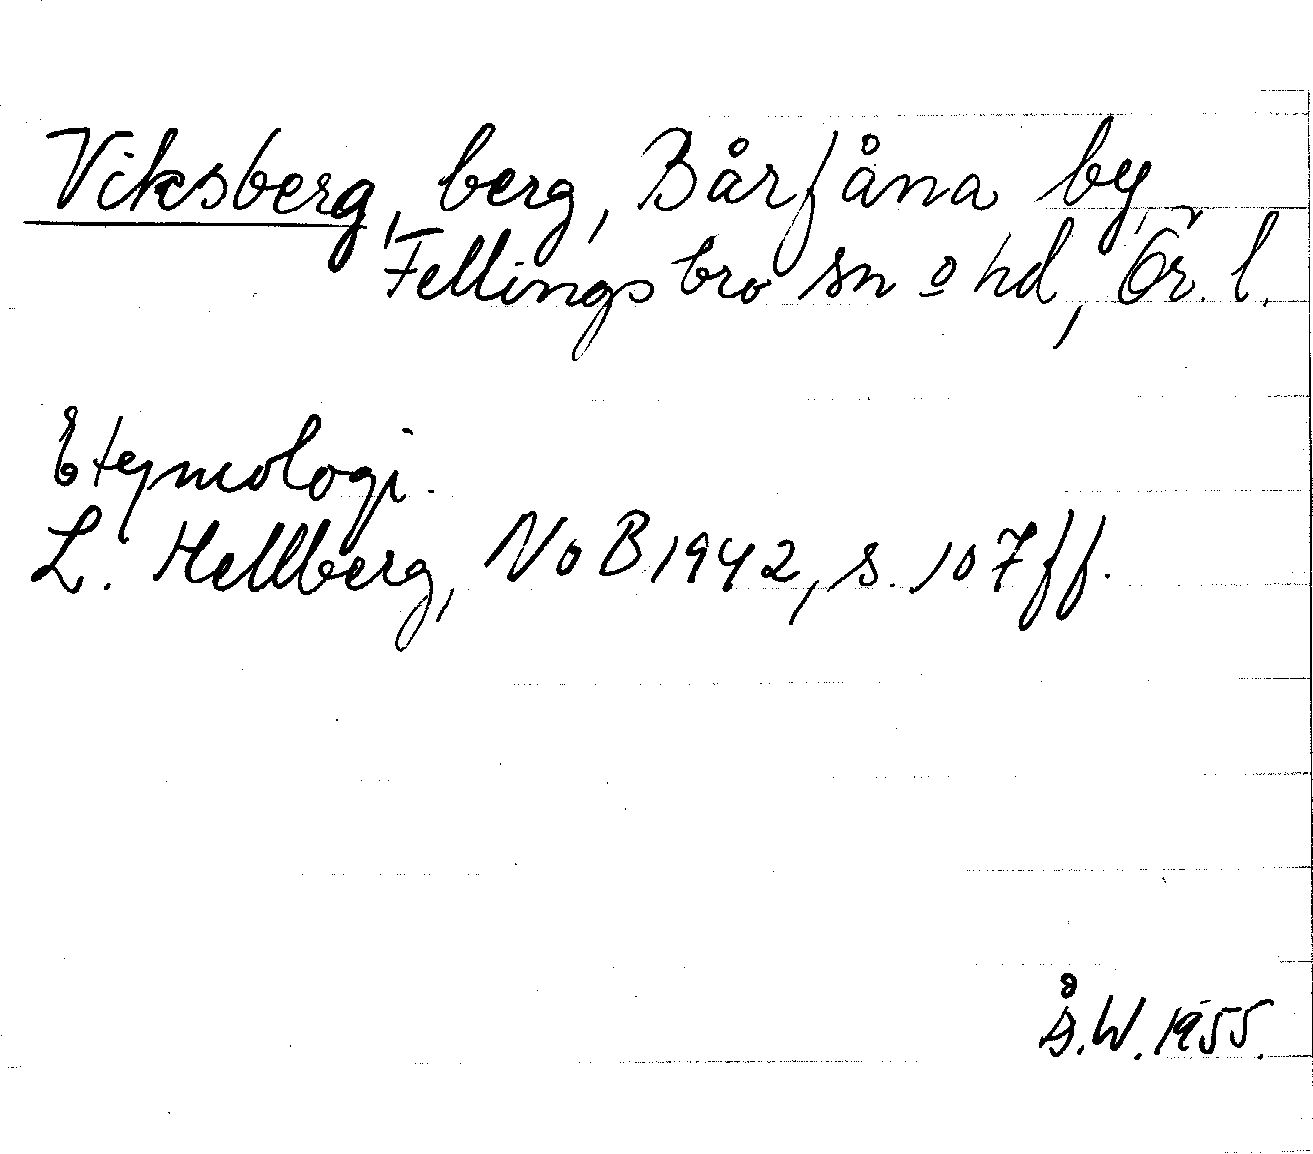 Viksberg, berg, Bårfåna by,
Fellingsbro sn o hd, Ör. l.
Etymologi.
L. Hellberg, NoB 1942, s. 107 ff.
Å.W. 1955.